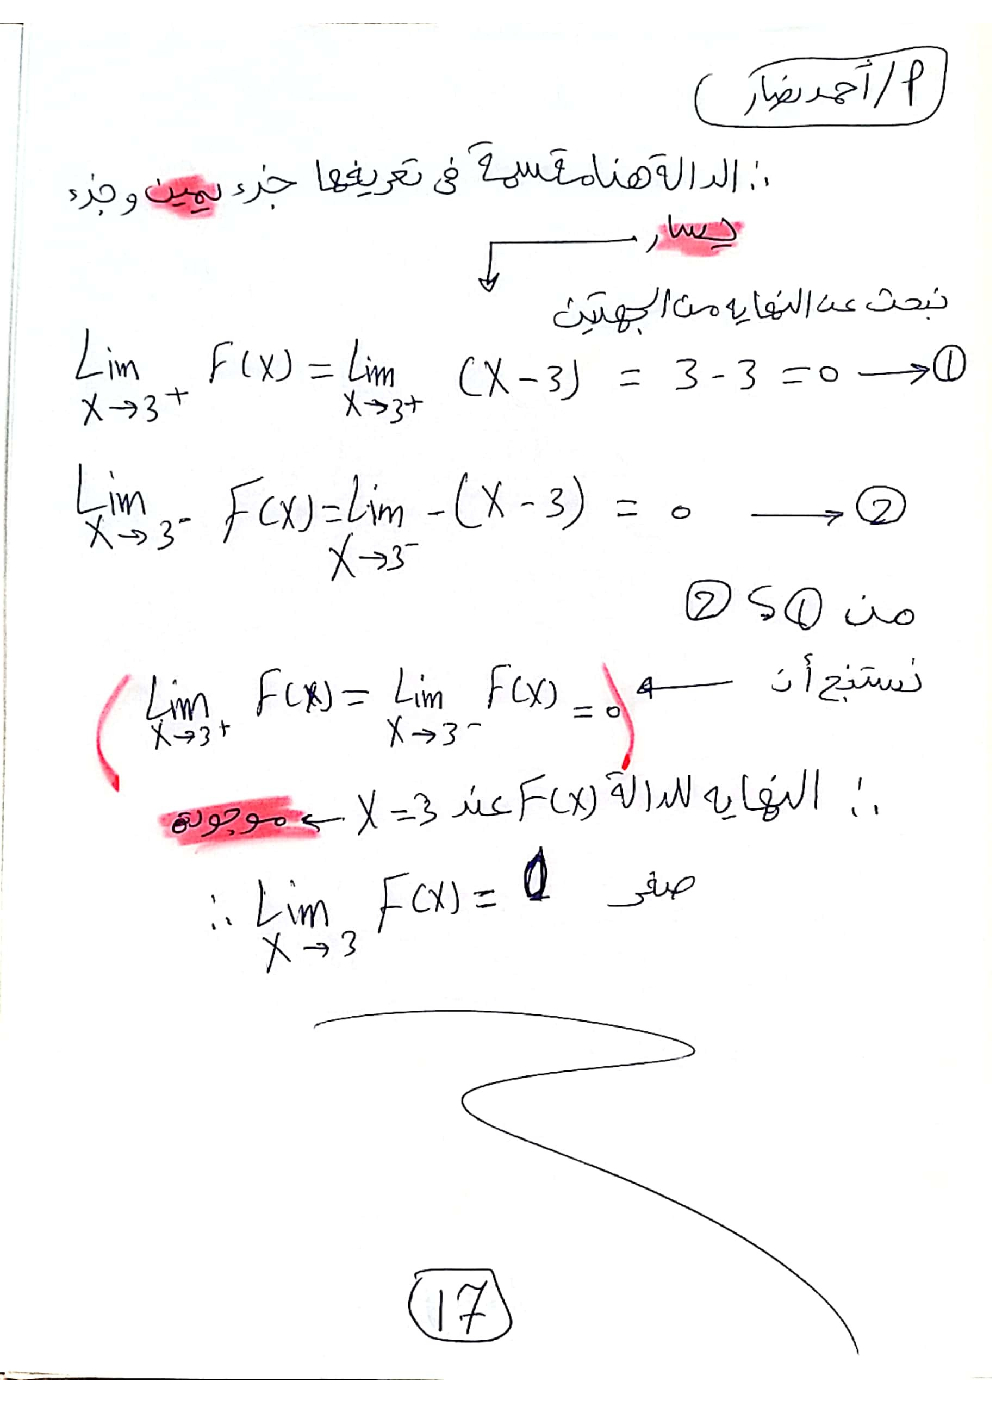 م/أحمد نصار
∴ الدالة هنا مقسمة فى تعريفها جزء يمين وجزء
يسار
نبحث عن النهايه من الجهتين
Lim F(X) = Lim (X-3) = 3-3 = 0 → ①
X→3+ X→3+
Lim F(X) = Lim -(X-3) = 0 → ②
X→3- X→3-
من ① و ②
نستنتج أن ← Lim F(X) = Lim F(X) = 0
X→3+ X→3-
∴ النهايه للدالة F(X) عند X=3 ← موجودة
∴ Lim F(X) = 0 صفر
X→3
17